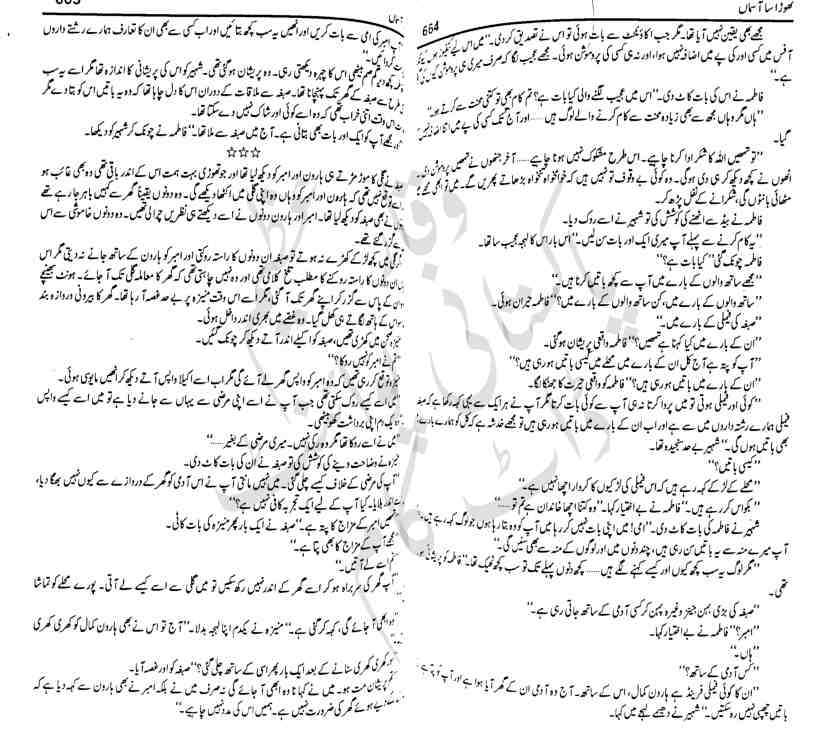 تھوڑا سا آسماں
664
مجھے بھی یقین نہیں آیا تھا۔ مگر جب اکاؤنٹنٹ سے بات ہوئی تو اس نے تصدیق کر دی۔" "میں اس لیے
آفس میں کسی اور کی پے میں اضافہ نہیں ہوا، اور نہ ہی کسی کی پروموشن ہوئی۔ مجھے عجیب لگا کہ صرف میری ہی پروموشن کیوں
ہے۔"
فاطمہ نے اس کی بات کاٹ دی۔ "اس میں عجیب لگنے والی کیا بات ہے؟ تم کام بھی تو کتنی محنت سے کرتے ہو۔"
"ہاں مگر وہاں مجھ سے بھی زیادہ محنت سے کام کرنے والے لوگ ہیں ...... اور آج تک کسی کی پے میں اتنا اضافہ نہیں
گیا۔
"تو تمہیں اللہ کا شکر ادا کرنا چاہیے۔ اس طرح مشکوک نہیں ہونا چاہیے ...... آخر جنھوں نے تمہیں پروموشن دی
انھوں نے کچھ دیکھ کر ہی دی ہوگی۔ وہ کوئی بے وقوف تو نہیں ہیں کہ خوامخواہ تنخواہ بڑھاتے پھریں گے۔ میں تو بھی
مٹھائی بانٹوں گی، شکرانے کے نفل پڑھ کر۔
فاطمہ نے بیڈ سے اٹھنے کی کوشش کی تو شہیر نے اسے روک دیا۔
"یہ کام کرنے سے پہلے آپ میری ایک اور بات سن لیں۔" اس بار اس کا لہجہ عجیب سا تھا۔
فاطمہ چونک گئی "کیا بات ہے؟"
"مجھے ساتھ والوں کے بارے میں آپ سے کچھ باتیں کرنا ہیں۔"
"ساتھ والوں کے بارے میں، کن ساتھ والوں کے بارے میں؟" فاطمہ حیران ہوئی۔
"صبغہ کی فیملی کے بارے میں۔"
"ان کے بارے میں کیا کہنا ہے تمہیں؟" فاطمہ واقعی پریشان ہوگئی۔
"آپ کو پتہ ہے آج کل ان کے بارے میں محلے میں کیسی باتیں ہو رہی ہیں؟"
"ان کے بارے میں باتیں ہو رہی ہیں؟" فاطمہ کو واقعی حیرت کا جھٹکا لگا۔
"کوئی اور فیملی ہوتی تو میں پروا کرتا نہ ہی آپ سے کوئی بات کرتا مگر آپ نے ہر ایک سے یہی کہہ رکھا ہے کہ صبغہ
فیملی ہمارے رشتہ داروں میں سے ہے اور اب ان کے بارے میں باتیں ہو رہی ہیں تو مجھے خدشہ ہے کہ کل کو ہمارے بارے
بھی باتیں ہوں گی۔" شہیر بے حد سنجیدہ تھا۔
"کیسی باتیں؟"
"محلے کے لڑکے کہہ رہے ہیں کہ اس فیملی کی لڑکیوں کا کردار اچھا نہیں ہے۔"
"بکواس کر رہے ہیں۔" فاطمہ نے بے اختیار کہا۔ "وہ کتنا اچھا خاندان ہے تم تو ......"
شہیر نے فاطمہ کی بات کاٹ دی۔ "امی! میں اپنی بات نہیں کر رہا میں آپ کو وہ بتا رہا ہوں جو لوگ کہہ رہے ہیں،
آپ میرے منہ سے یہ باتیں سن رہی ہیں، چند دنوں میں اور لوگوں کے منہ سے بھی سنیں گی۔"
"مگر لوگ یہ سب کچھ کیوں اور کیسے کہنے لگے ہیں ...... کچھ دنوں پہلے تک تو سب کچھ ٹھیک تھا۔" فاطمہ کو پریشانی
تھی۔
"صبغہ کی بڑی بہن جینز وغیرہ پہن کر کسی آدمی کے ساتھ جاتی رہی ہے۔"
"امبر؟" فاطمہ نے بے اختیار کہا۔
"ہاں۔"
"کس آدمی کے ساتھ؟"
"ان کا کوئی فیملی فرینڈ ہے ہارون کمال، اس کے ساتھ۔ آج وہ آدمی ان کے گھر آیا ہوا ہے اور آپ کو پتہ ہے
باتیں چھپی نہیں رہ سکتیں۔" شہیر نے دھیمے لہجے میں کہا۔
آپ امبر کی امی سے بات کریں اور انھیں یہ سب کچھ بتائیں اور اب کسی سے بھی ان کا تعارف ہمارے رشتے داروں
گم صم بیٹھی اس کا چہرہ دیکھتی رہی۔ وہ پریشان ہوگئی تھی۔ شہیر کو اس کی پریشانی کا اندازہ تھا مگر اسے یہ سب
طرح سے صبغہ کے گھر تک پہنچانا تھا۔ صبغہ سے ملاقات کے دوران اس کا دل چاہا تھا کہ وہ یہ باتیں اس کو بتا دے مگر
اس وقت اتنی خراب تھی کہ وہ اسے کوئی اور شاک نہیں دے سکتا تھا۔
مجھے آپ کو ایک اور بات بھی بتانی ہے۔ آج میں صبغہ سے ملا تھا۔" فاطمہ نے چونک کر شہیر کو دیکھا۔
☆☆☆
نے گلی کا موڑ مڑتے ہی ہارون اور امبر کو دیکھ لیا تھا اور جو تھوڑی بہت ہمت اس کے اندر باقی تھی وہ بھی غائب ہو
توقع نہیں تھی کہ ہارون اور امبر کو وہاں وہ اپنی گلی میں اکٹھا دیکھے گی۔ وہ دونوں یقیناً گھر سے کہیں باہر جا رہے تھے
نے بھی صبغہ کو دیکھ لیا تھا۔ امبر اور ہارون دونوں نے اسے دیکھتے ہی نظریں چرا لی تھیں۔ وہ دونوں خاموشی سے اس
گزر گئے تھے۔
گلی میں کچھ لڑکے کھڑے نہ ہوتے تو صبغہ ان دونوں کا راستہ روکتی اور امبر کو ہارون کے ساتھ جانے نہ دیتی مگر اس
ان دونوں کا راستہ روکنے کا مطلب تلخ کلامی تھی اور وہ نہیں چاہتی تھی کہ گھر کا معاملہ گلی تک آ جائے۔ ہونٹ بھینچے
ان کے پاس سے گزر کر اپنے گھر تک آ گئی، مگر اسے اس وقت منیزہ پر بے حد غصہ آ رہا تھا۔ گھر کا بیرونی دروازہ بند
اس کے ہاتھ لگاتے ہی کھل گیا۔ وہ غصے میں بھری اندر داخل ہوئی۔
صحن میں کھڑی تھیں، صبغہ کو اکیلے اندر آتے دیکھ کر چونک گئیں۔
نے امبر کو نہیں روکا؟"
توقع کر رہی تھیں کہ وہ امبر کو واپس گھر لے آئے گی مگر اب اسے اکیلا واپس آتے دیکھ کر انھیں مایوسی ہوئی۔
میں اسے کیسے روک سکتی تھی جب آپ نے اسے اپنی مرضی سے یہاں سے جانے دیا ہے تو میں اسے کیسے واپس
یک دم اپنی برداشت کھو بیٹھی۔
میں نے اسے روکا تھا مگر وہ رکی نہیں۔ میری مرضی کے بغیر ......"
منیزہ نے وضاحت دینے کی کوشش کی تو صبغہ نے ان کی بات کاٹ دی۔
"آپ کی مرضی کے خلاف کیسے چلی گئی۔ میں نہیں مانتی آپ نے اس آدمی کو گھر کے دروازے سے کیوں نہیں بھگا دیا،
بلایا۔ کیا آپ کے لیے ایک تجربہ کافی نہیں ہے؟"
تمہیں امبر کے مزاج کا پتہ ہے۔" صبغہ نے ایک بار پھر منیزہ کی بات کاٹی۔
"مجھے آپ کے مزاج کا بھی پتا ہے۔"
تم اسے لے آتیں۔"
آپ گھر کی سربراہ ہو کر اسے گھر کے اندر نہیں رکھ سکیں تو میں گلی سے اسے کیسے لے آتی۔ پورے محلے کو تماشا
وہ ابھی آ جائے گی، کہہ کر گئی ہے۔" منیزہ نے یکدم اپنا لہجہ بدلا۔ "آج تو اس نے بھی ہارون کمال کو کھری کھری
کھری کھری سنانے کے بعد ایک بار پھر اسی کے ساتھ چلی گئی؟" صبغہ کو اور غصہ آیا۔
تم پریشان مت ہو۔ میں نے کہا نا وہ ابھی آ جائے گی نہ صرف میں نے بلکہ امبر نے بھی ہارون سے کہہ دیا ہے کہ
دیے ہوئے گھر کی ضرورت نہیں ہے۔ ہمیں اس کی مدد نہیں چاہیے۔"